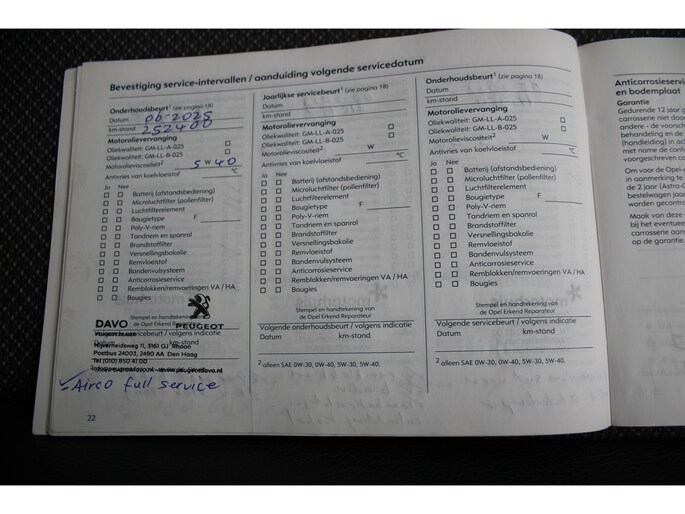 Bevestiging service-intervallen / aanduiding volgende servicedatum
Onderhoudsbeurt¹ (zie pagina 18)
Datum 06-2025
km-stand 252400
Motorolievervanging
Oliekwaliteit: GM-LL-A-025
Oliekwaliteit: GM-LL-B-025
Motorolieviscositeit² 5 W 40
Antivries van koelvloeistof °C
Ja Nee
Batterij (afstandsbediening)
Microluchtfilter (pollenfilter)
Luchtfilterelement
Bougietype F
Poly-V-riem
Tandriem en spanrol
Brandstoffilter
Versnellingsbakolie
Remvloeistof
Bandenvulsysteem
Anticorrosieservice
Remblokken/remvoeringen VA / HA
Bougies
Stempel en handtekening van
de Opel Erkend Reparateur
DAVO PEUGEOT
servicebeurt / volgens indicatie
Datum km-stand
Nijverheidsweg 11, 3161 GJ Rhoon
Postbus 24003, 2490 AA Den Haag
Tel (010) 850 41 00
Airco full service
22
Jaarlijkse servicebeurt¹ (zie pagina 18)
Datum
km-stand
Motorolievervanging
Oliekwaliteit: GM-LL-A-025
Oliekwaliteit: GM-LL-B-025
Motorolieviscositeit² W
Antivries van koelvloeistof °C
Ja Nee
Batterij (afstandsbediening)
Microluchtfilter (pollenfilter)
Luchtfilterelement
Bougietype F
Poly-V-riem
Tandriem en spanrol
Brandstoffilter
Versnellingsbakolie
Remvloeistof
Bandenvulsysteem
Anticorrosieservice
Remblokken/remvoeringen VA / HA
Bougies
Stempel en handtekening van
de Opel Erkend Reparateur
Volgende onderhoudsbeurt / volgens indicatie
Datum km-stand
² alleen SAE 0W-30, 0W-40, 5W-30, 5W-40.
Onderhoudsbeurt¹ (zie pagina 18)
Datum
km-stand
Motorolievervanging
Oliekwaliteit: GM-LL-A-025
Oliekwaliteit: GM-LL-B-025
Motorolieviscositeit² W
Antivries van koelvloeistof °C
Ja Nee
Batterij (afstandsbediening)
Microluchtfilter (pollenfilter)
Luchtfilterelement
Bougietype F
Poly-V-riem
Tandriem en spanrol
Brandstoffilter
Versnellingsbakolie
Remvloeistof
Bandenvulsysteem
Anticorrosieservice
Remblokken/remvoeringen VA / HA
Bougies
Stempel en handtekening van
de Opel Erkend Reparateur
Volgende servicebeurt / volgens indicatie
Datum km-stand
² alleen SAE 0W-30, 0W-40, 5W-30, 5W-40.
Anticorrosieservice
en bodemplaat
Garantie
Gedurende 12 jaar
niet door corrosie
andere - de voorsch
behandeling en de
(handleiding) in ach
met name de confo
voorgeschreven co
Om voor de Opel-
in aanmerking te
de 2 jaar (Astra-
bestelwagen jaar
worden gecontro
Maak van deze
bij het eventuee
carrosserie aan
op de garantie.